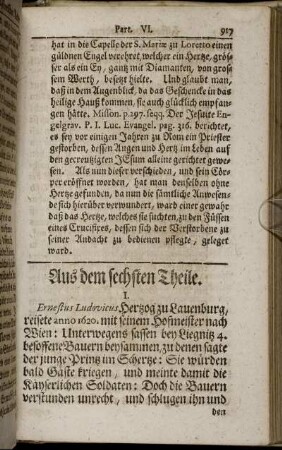 Part. VI. 917
hat in die Capelle der S. Mariæ zu Loretto einen
güldnen Engel verehret, welcher ein Hertze, grös-
ser als ein Ey, gantz mit Diamanten, von gros-
sem Werth, besetzt hielte. Und glaubt man,
daß in dem Augenblick, da das Geschencke in das
heilige Hauß kommen, sie auch glücklich empfan-
gen hätte. Misson. p. 297. seqq. Der Jesuite En-
gelgrav. P. I. Luc. Evangel. pag. 316. berichtet,
es sey vor einigen Jahren zu Rom ein Priester
gestorben, dessen Augen und Hertz im Leben auf
den gecreutzigten JEsum alleine gerichtet gewe-
sen. Als nun dieser verschieden, und sein Cör-
per eröffnet worden, hat man denselben ohne
Hertze gefunden, da nun die sämtliche Anwesen-
de sich hierüber verwundert, ward einer gewahr
daß das Hertze, welches sie suchten, zu den Füssen
eines Crucifixes, dessen sich der Verstorbene zu
seiner Andacht zu bedienen pflegte, geleget
ward.
Aus dem sechsten Theile.
I.
Ernestus Ludovicus Hertzog zu Lauenburg,
reisete anno 1620. mit seinem Hofmeister nach
Wien: Unterwegens sassen bey Liegnitz 4.
besoffene Bauern beysammen, zu denen sagte
der junge Printz im Schertze: Sie würden
bald Gäste kriegen, und meinte damit die
Kayserlichen Soldaten: Doch die Bauern
verstunden unrecht, und schlugen ihn und
den